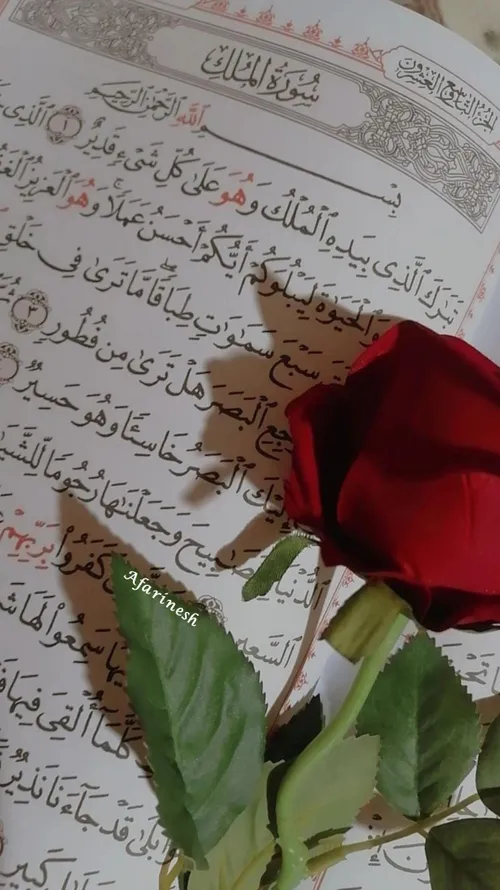 الجزء التاسع والعشرون
سُورَةُ المُلْكِ
بِسْمِ ٱللَّهِ ٱلرَّحْمَٰنِ ٱلرَّحِيمِ
تَبَٰرَكَ ٱلَّذِى بِيَدِهِ ٱلْمُلْكُ وَهُوَ عَلَىٰ كُلِّ شَىْءٍ قَدِيرٌ ١ ٱلَّذِى
وَٱلْحَيَوٰةَ لِيَبْلُوَكُمْ أَيُّكُمْ أَحْسَنُ عَمَلًا وَهُوَ ٱلْعَزِيزُ
سَبْعَ سَمَٰوَٰتٍ طِبَاقًا مَّا تَرَىٰ فِى خَلْقِ
ٱلْبَصَرَ هَلْ تَرَىٰ مِن فُطُورٍ ٣
إِلَيْكَ ٱلْبَصَرُ خَاسِئًا وَهُوَ حَسِيرٌ
ٱلدُّنْيَا بِمَصَٰبِيحَ وَجَعَلْنَٰهَا رُجُومًا لِّلشَّيَٰ
ٱلسَّعِيرِ كَفَرُوا۟ بِرَبِّهِمْ
سَمِعُوا۟ لَهَا
كُلَّمَآ أُلْقِىَ فِيهَا
بَلَىٰ قَدْ جَآءَنَا نَذِيرٌ
كَبِيرٍ
Afarinesh